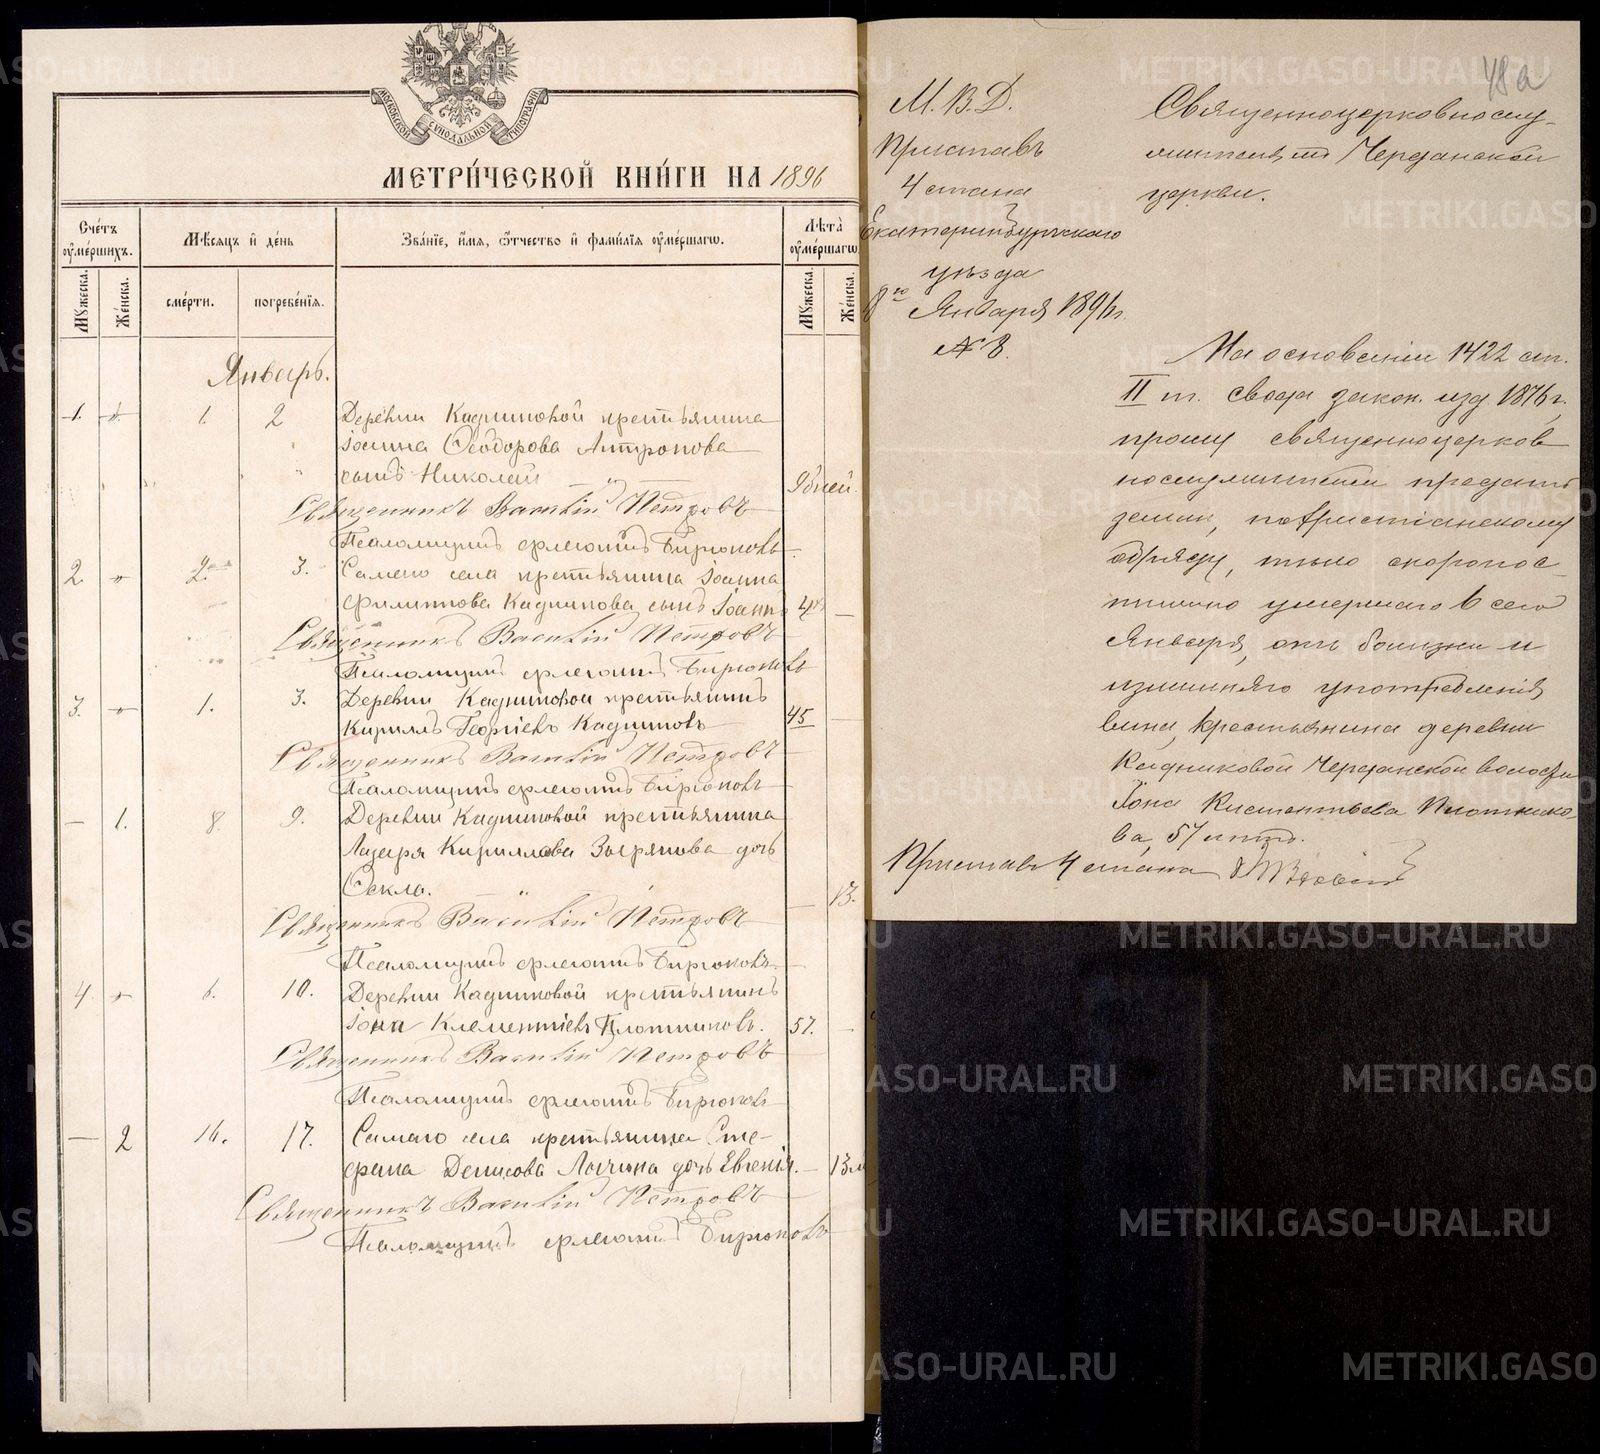 МОСКОВСКОЙ СѴНОДАЛЬНОЙ ТИПОГРАФІИ
МЕТРИ́ЧЕСКОЙ КНИ́ГИ НА 1896
Сче́тъ ᲂу҆ме́ршихъ.
Мѣ́сяцъ и҆ де́нь
Зва́нїе, и҆́мя, ѻ҆́тчество и҆ фами́лїя ᲂу҆ме́ршагѡ.
Лѣ́та ᲂу҆ме́ршагѡ
Мꙋ́жеска.
Же́нска.
сме́рти.
погребе́нїя.
Мꙋ́жеска.
Же́нска.
Январь.
1. 1. 2 Деревни Кадниковой крестьянина
Іоанна Ѳеодорова Антропова
сынъ Николай 9 дней.
Священникъ Василій Петровъ
Псаломщикъ Флегонтъ Бирюковъ
2. 2. 3. Самаго села крестьянина Іоанна
Филиппова Кадникова сынъ Іоаннъ
Священникъ Василій Петровъ
Псаломщикъ Флегонтъ Бирюковъ
3. 1. 3. Деревни Кадниковой крестьянинъ
Кириллъ Георгіевъ Кадниковъ 45
Священникъ Василій Петровъ
Псаломщикъ Флегонтъ Бирюковъ
1. 8. 9. Деревни Кадниковой крестьянина
Лазаря Кириллова Зырянова дочь
Ѳекла. 13.
Священникъ Василій Петровъ
Псаломщикъ Флегонтъ Бирюковъ
4 6. 10. Деревни Кадниковой крестьянинъ
Іона Клементіевъ Плотниковъ. 57.
Священникъ Василій Петровъ
Псаломщикъ Флегонтъ Бирюковъ
2 16. 17. Самаго села крестьянина Сте-
фана Денисова дочь Евгенія. 13
Священникъ Василій Петровъ
Псаломщикъ Флегонтъ Бирюковъ
48а
М. В. Д.
Приставъ
4 стана
Екатеринбургскаго
уѣзда
8го Января 1896 г.
№ 8.
Священноцерковнослу-
жителямъ Черданской
церкви.
На основаніи 1422 ст.
II т. свода закон. изд 1876 г.
прошу священноцерков
нослужителей предать
земли, по христіанскому
обряду, тѣло скоропос-
тижно умершаго 6 сего
Января, отъ болѣзни и
излишняго употребленія
вина, крестьянина деревни
Кадниковой Черданской волости
Іона Клементьева Плотнико-
ва, 57 лѣтъ.
Приставъ 4 стана
METRIKI.GASO-URAL.RU